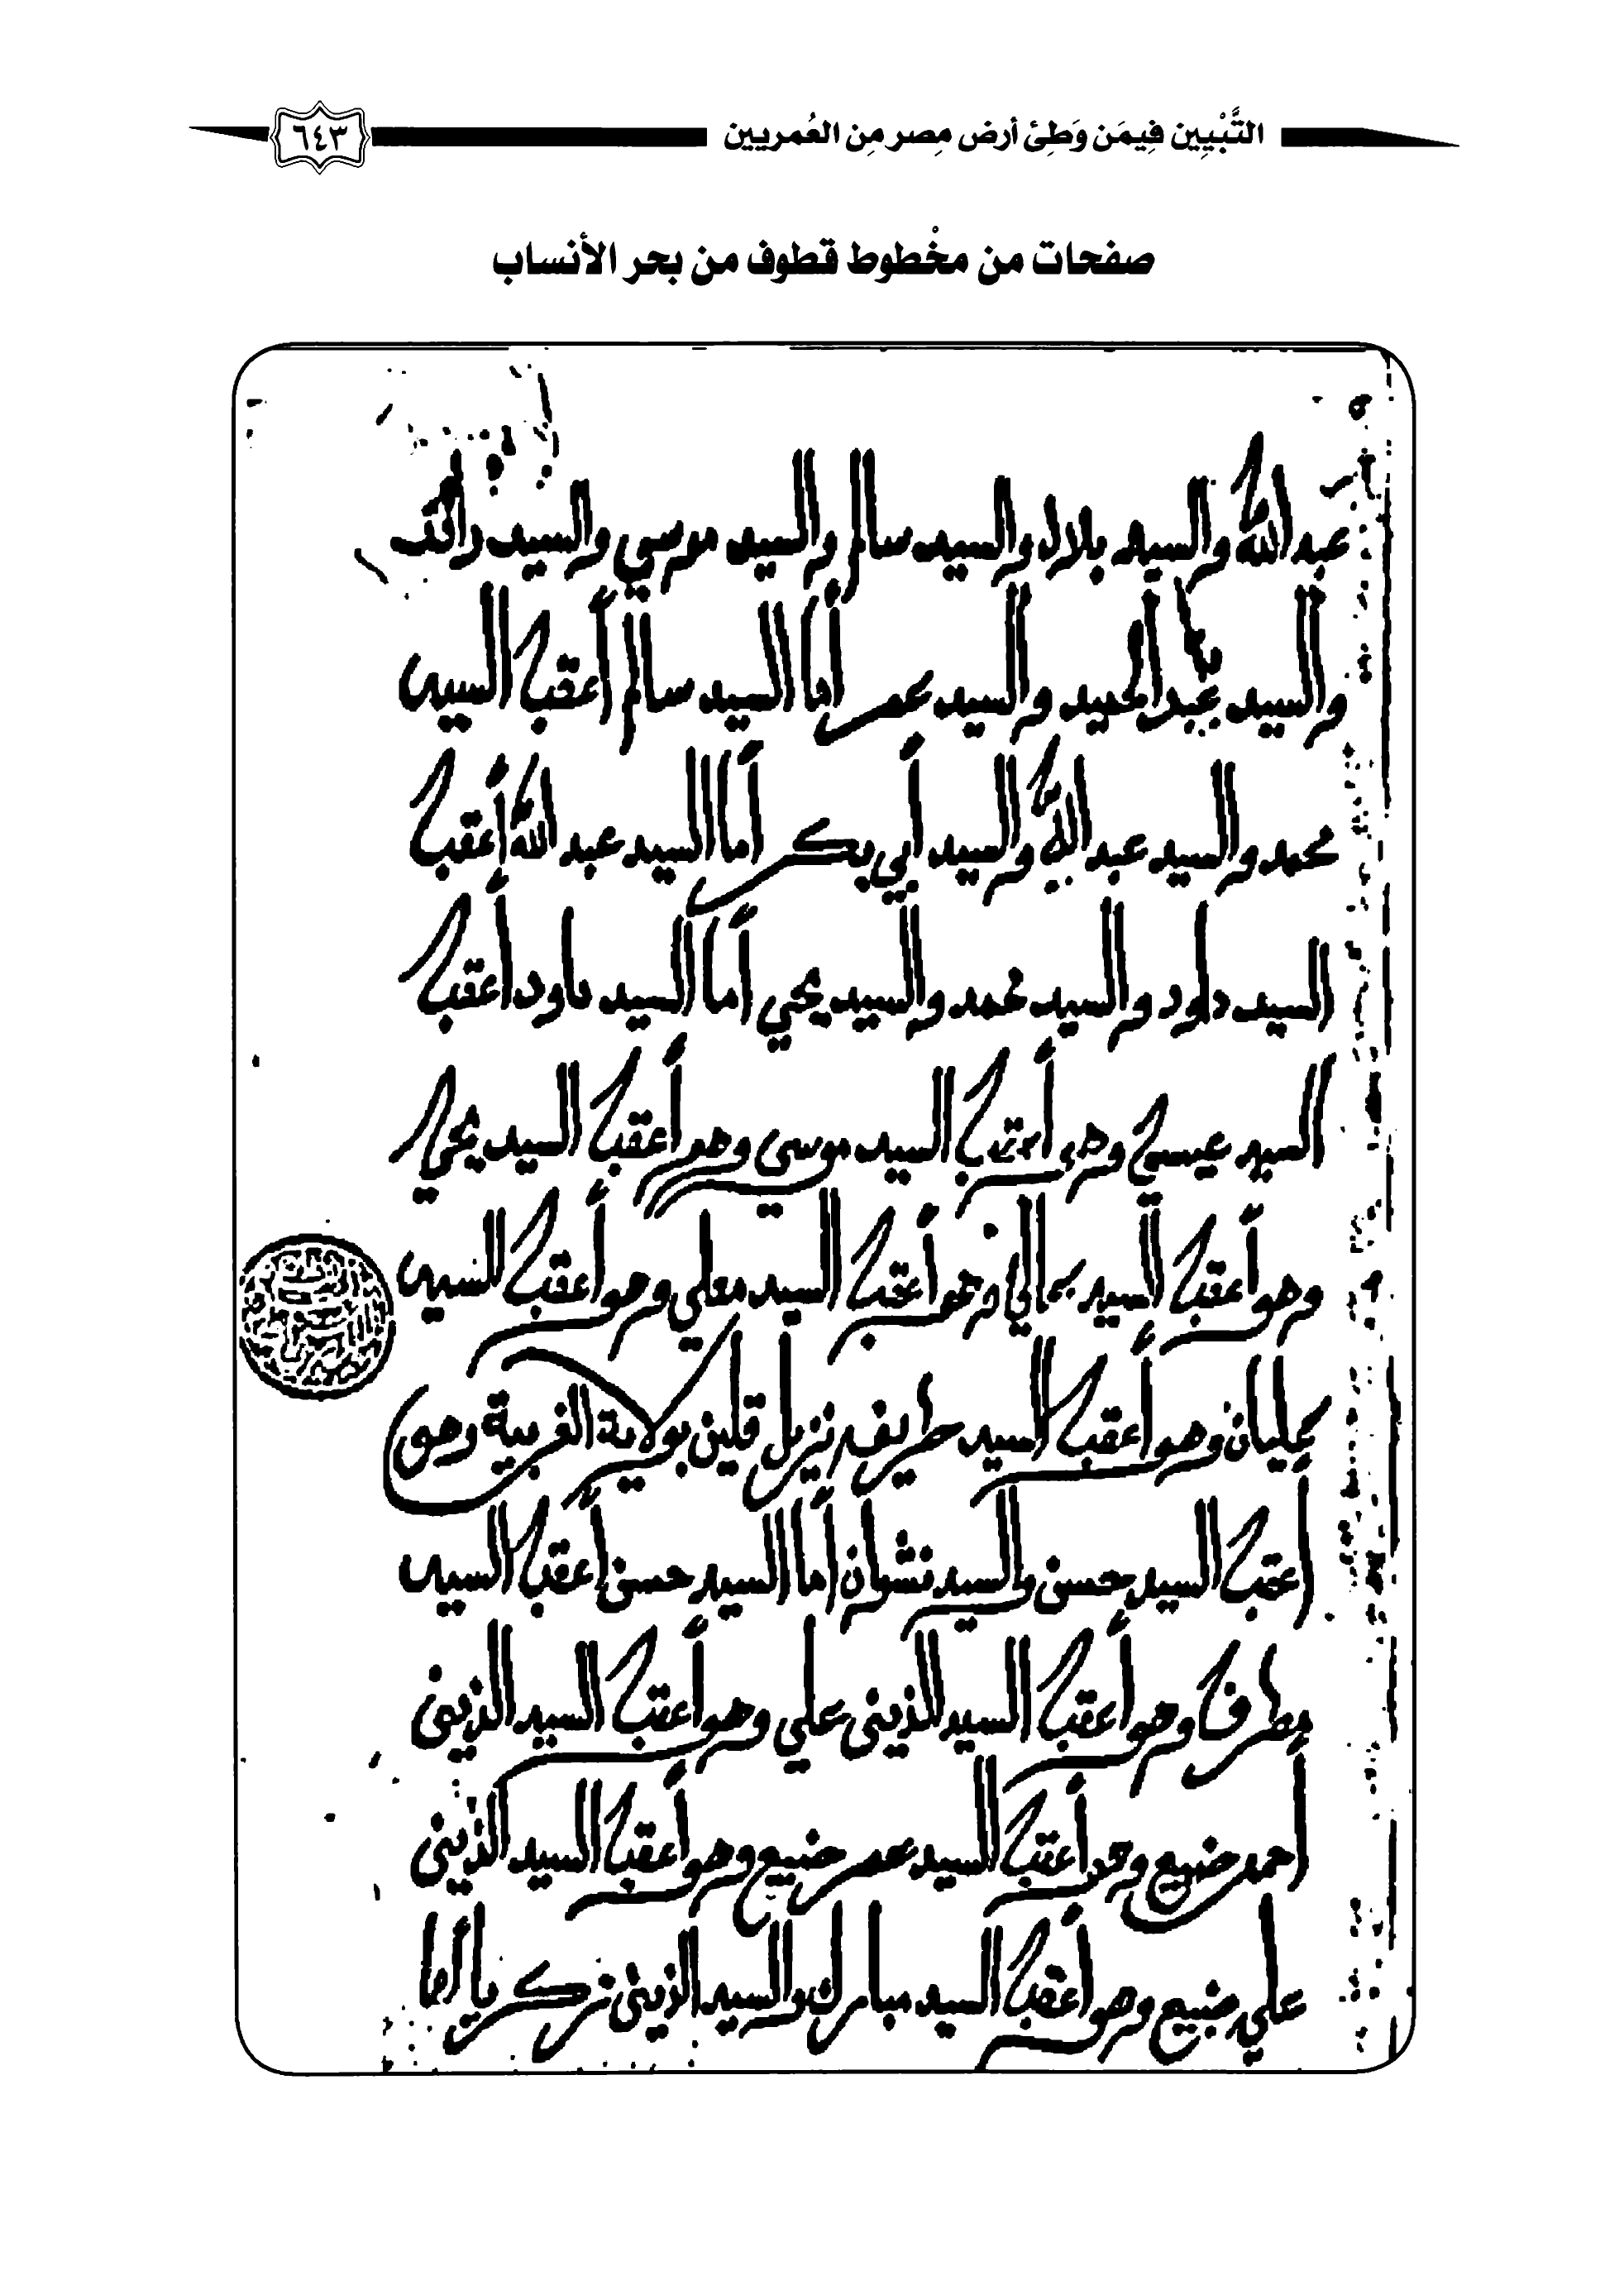 التَّبْيِين فِيمَن وَطِئ أرض مِصر مِن العُمريين
٦٤٣
صفحات من مخْطوط قطوف من بحر الأنساب
عبد الله والسيد بلال والسيد سالم والسيد موسي والسيد
والسيد عبد الحميد والسيد عمر أما السيد سالم أعقب السيد
محمد والسيد عبد الله والسيد أبي بكر أما السيد عبد الله أعقب
السيد داود والسيد محمد والسيد يحي أما السيد داود أعقب
السيد عيسى وهو أعقب السيد موسى وهو أعقب السيد يحي
وهو أعقب السيد وهو أعقب السيد معلي وهو أعقب السيد
عليان وهو أعقب السيد طريف نزيل قلين بولاية الغربية وهو
أعقب السيد حسن والسيد نشوان أما السيد حسن أعقب السيد
مطرف وهو أعقب السيد الذيني علي وهو أعقب السيد الذيني
أحمد ضبيع وهو أعقب السيد عمر ضبيع وهو أعقب السيد الذيني
علي ضبيع وهو أعقب السيد مبارك والسيد الزيني زكريا أما